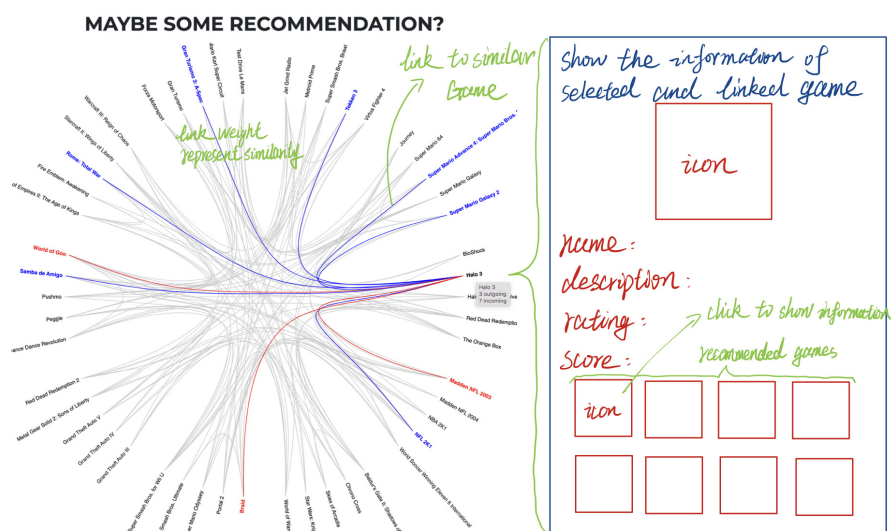 MAYBE SOME RECOMMENDATION?
Gran Turismo 3: A-Spec
Mario Kart Super Circuit
Test Drive Le Mans
Jet Grind Radio
Metroid Prime
Super Smash Bros. Brawl
Tekken 3
Virtua Fighter 4
Journey
Super Mario 64
Super Mario Advance 4: Super Mario Bros.
Super Mario Galaxy
Super Mario Galaxy 2
BioShock
Halo 3
Halo 3
3 outgoing
7 incoming
Red Dead Redemptio
The Orange Box
Madden NFL 2003
Madden NFL 2004
NBA 2K1
NFL 2K1
World Soccer Winning Eleven 6 International
Baldur's Gate II: Shadows of
Chrono Cross
Skies of Arcadia
Star Wars: Knig
World of War
Braid
Portal 2
er Mario Odyssey
Smash Bros. Ultimate
Super Smash Bros. for Wii U
Grand Theft Auto III
Grand Theft Auto IV
Grand Theft Auto V
Metal Gear Solid 2: Sons of Liberty
Red Dead Redemption 2
ance Dance Revolution
Peggle
Pushmo
Samba de Amigo
World of Goo
of Empires II: The Age of Kings
Fire Emblem: Awakening
Rome: Total War
Starcraft II: Wings of Liberty
Warcraft III: Reign of Chaos
Forza Motorsport
Gran Turismo
link weight
represent similarity
link to similar
Game
show the information of
selected and linked game
icon
name:
description:
rating:
score:
click to show information
recommended games
icon